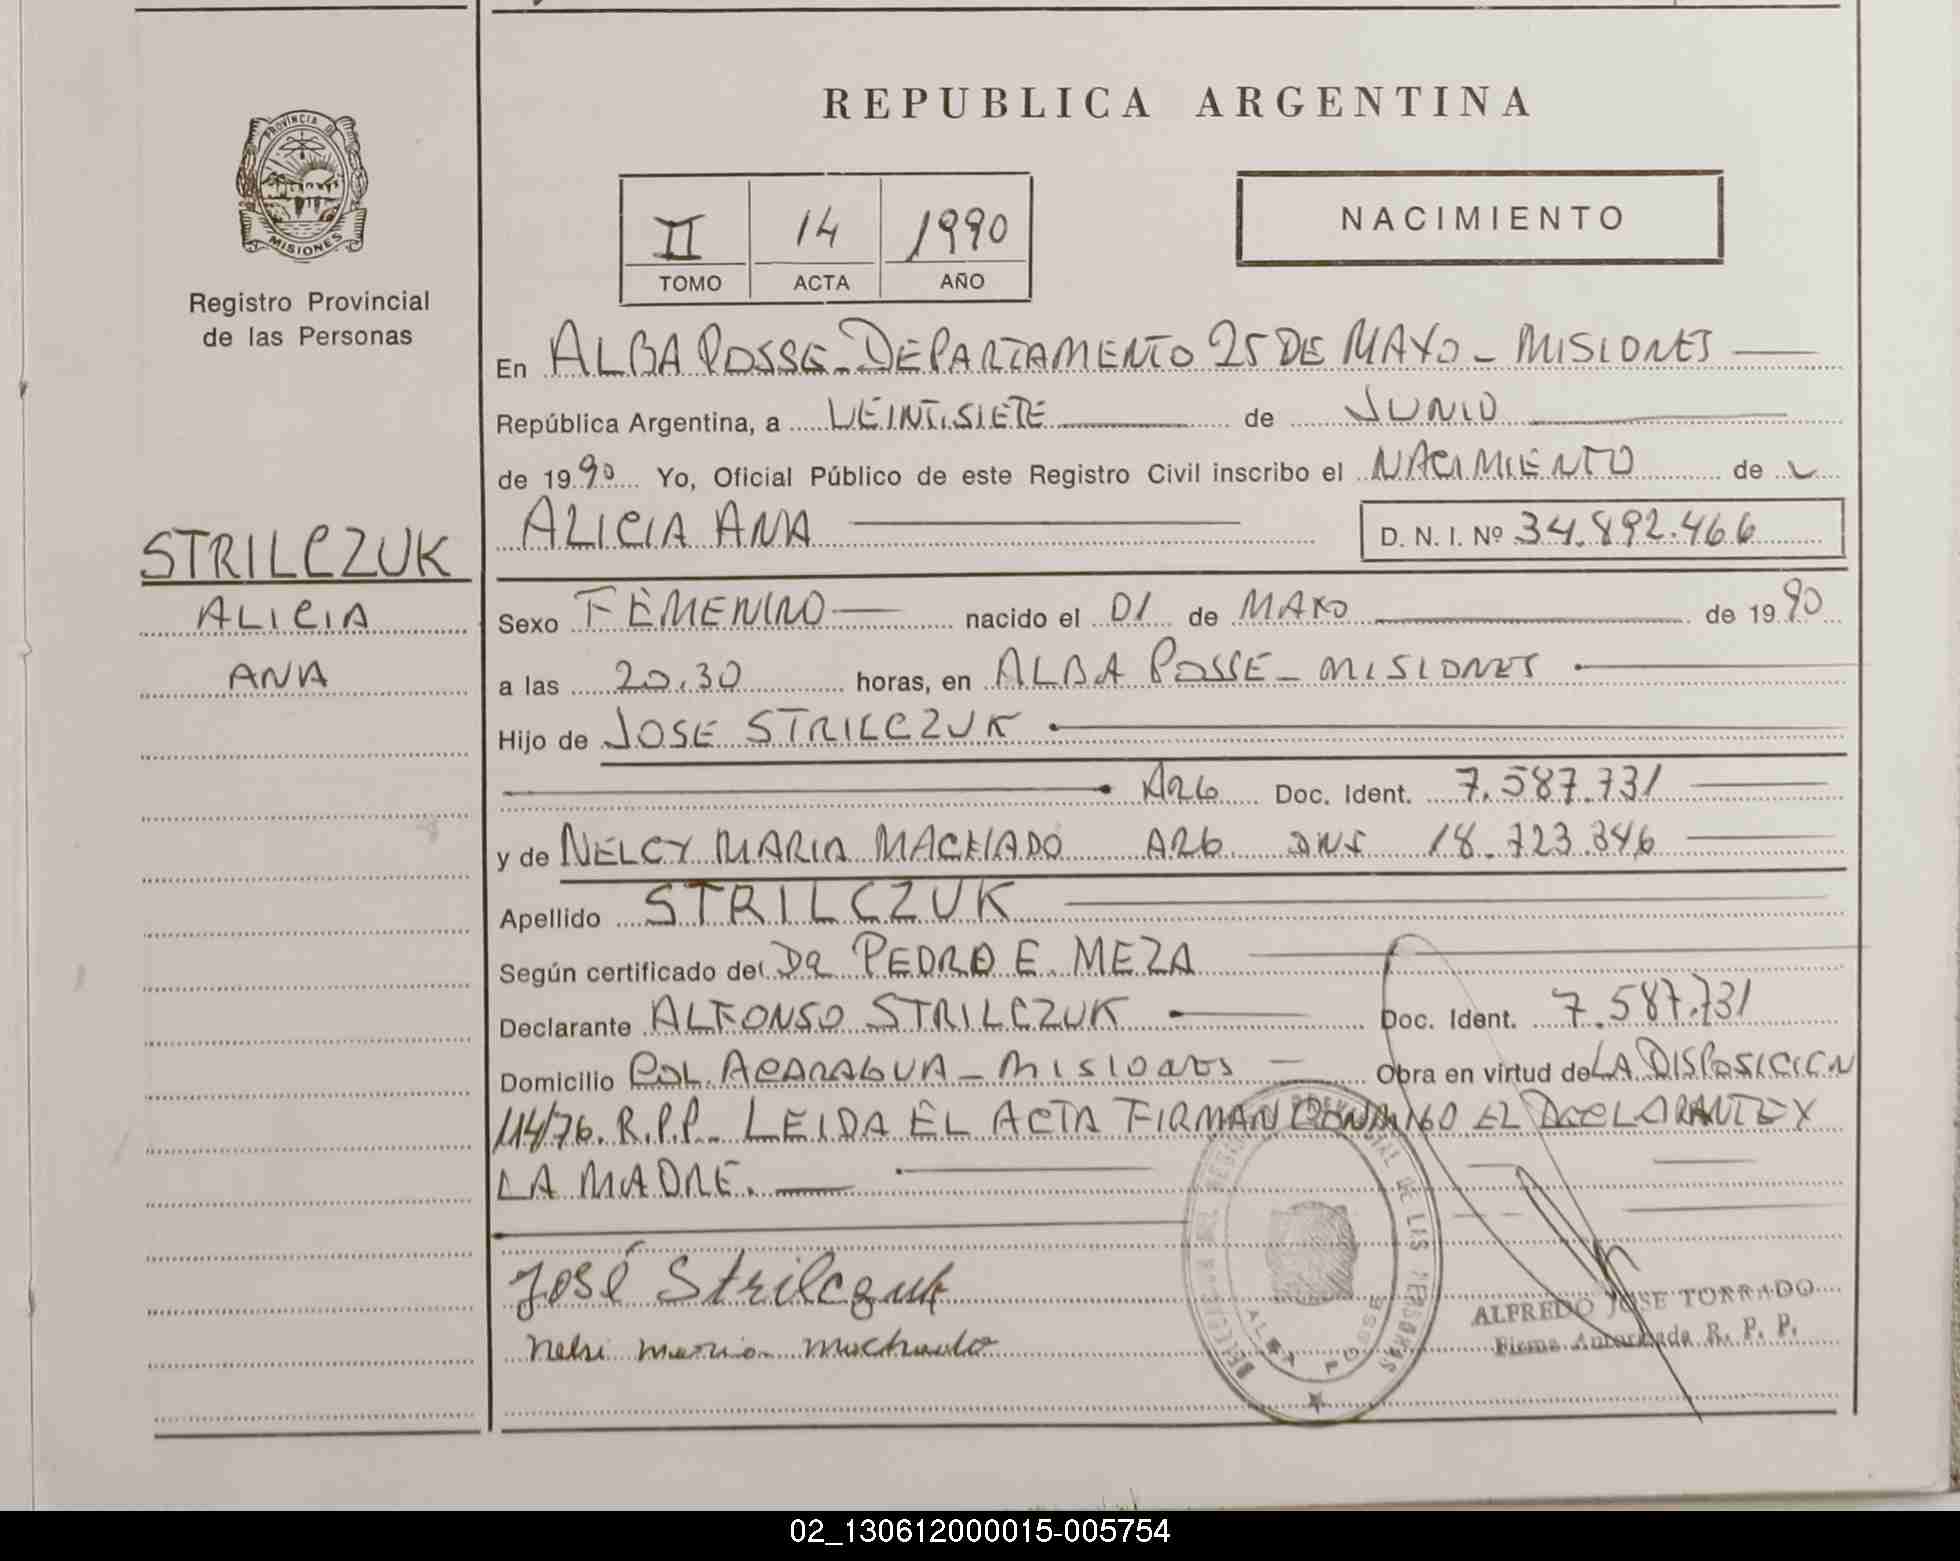 REPUBLICA ARGENTINA
PROVINCIA DE
MISIONES
Registro Provincial
de las Personas
II 14 1990
TOMO ACTA AÑO
NACIMIENTO
En ALBA POSSE - DEPARTAMENTO 25 DE MAYO - MISIONES
República Argentina, a VEINTISIETE de JUNIO
de 1990 Yo, Oficial Público de este Registro Civil inscribo el NACIMIENTO de
ALICIA ANA D. N. I. Nº 34.892.466
STRILCZUK
ALICIA
ANA
Sexo FEMENINO nacido el 01 de MAYO de 1990
a las 20.30 horas, en ALBA POSSE - MISIONES
Hijo de JOSE STRILCZUK
ARG Doc. Ident. 7.587.731
y de NELCY MARIA MACHADO ARG DNI 18.723.346
Apellido STRILCZUK
Según certificado del DR PEDRO E. MEZA
Declarante ALFONSO STRILCZUK Doc. Ident. 7.587.731
Domicilio COL. ACARAGUA - MISIONES Obra en virtud de LA DISPOSICION
114/76. R.P.P. LEIDA EL ACTA FIRMAN CONMIGO EL DECLARANTE Y
LA MADRE.
José Strilczuk
Nelsi maria machado
ALBA POSSE
ALFREDO JOSE TORRADO
Firma Autorizada R. P. P.
02_130612000015-005754